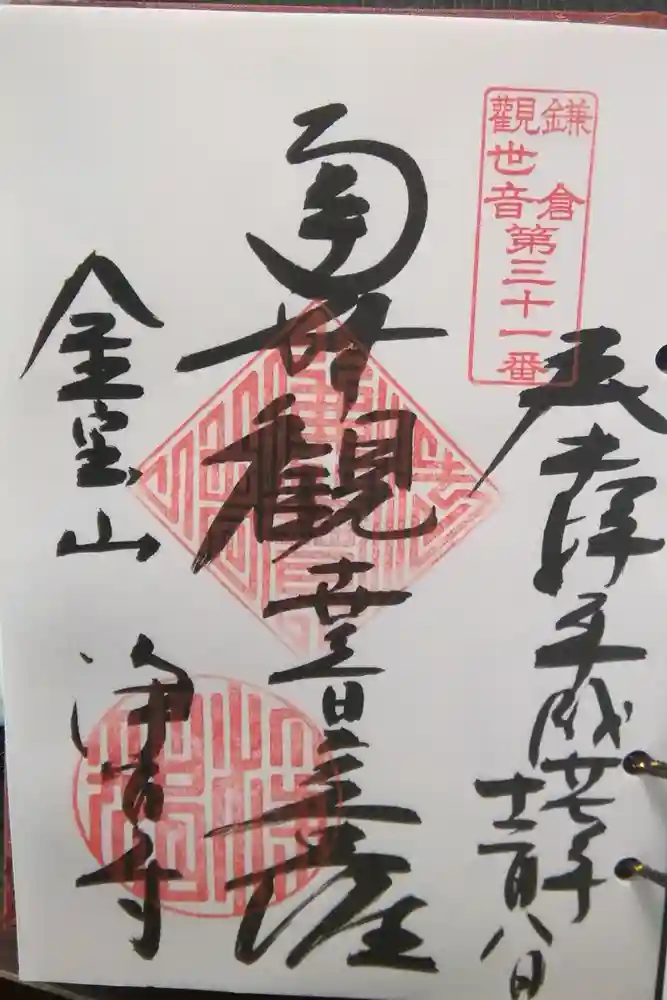 鎌倉
觀世音第三十一番
奉拝 平成廿七年
十二月八日
南無観世音菩薩
金宝山 浄智寺